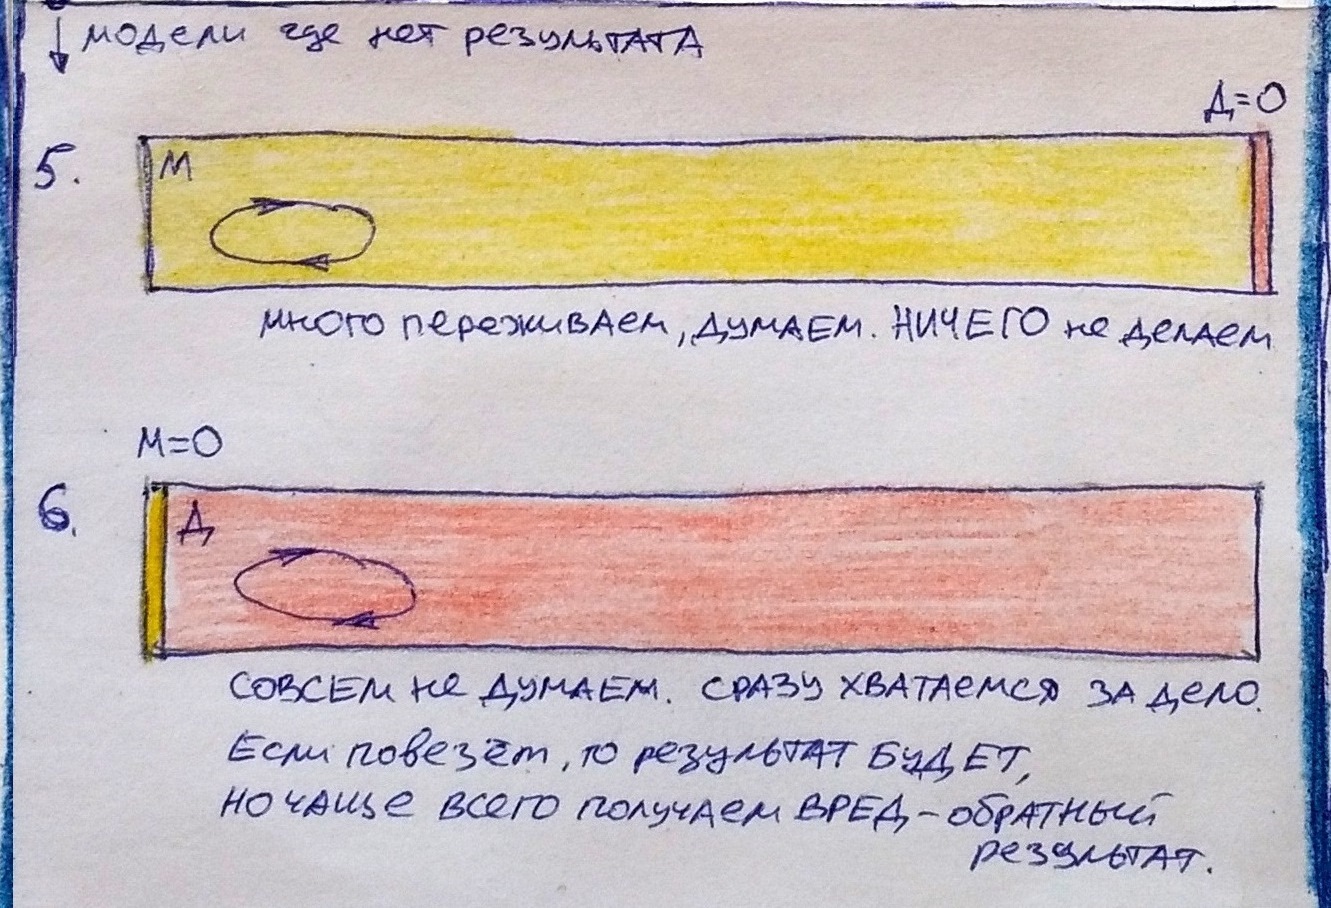 модели где нет результата
Д=0
5.
М
много переживаем, думаем. НИЧЕГО не делаем
М=0
6.
Д
совсем не думаем. сразу хватаемся за дело.
Если повезёт, то результат будет,
но чаще всего получаем ВРЕД - обратный
результат.